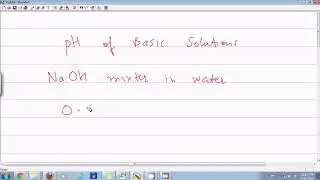 pH of Basic Solutions
NaOH mixter in water
0.